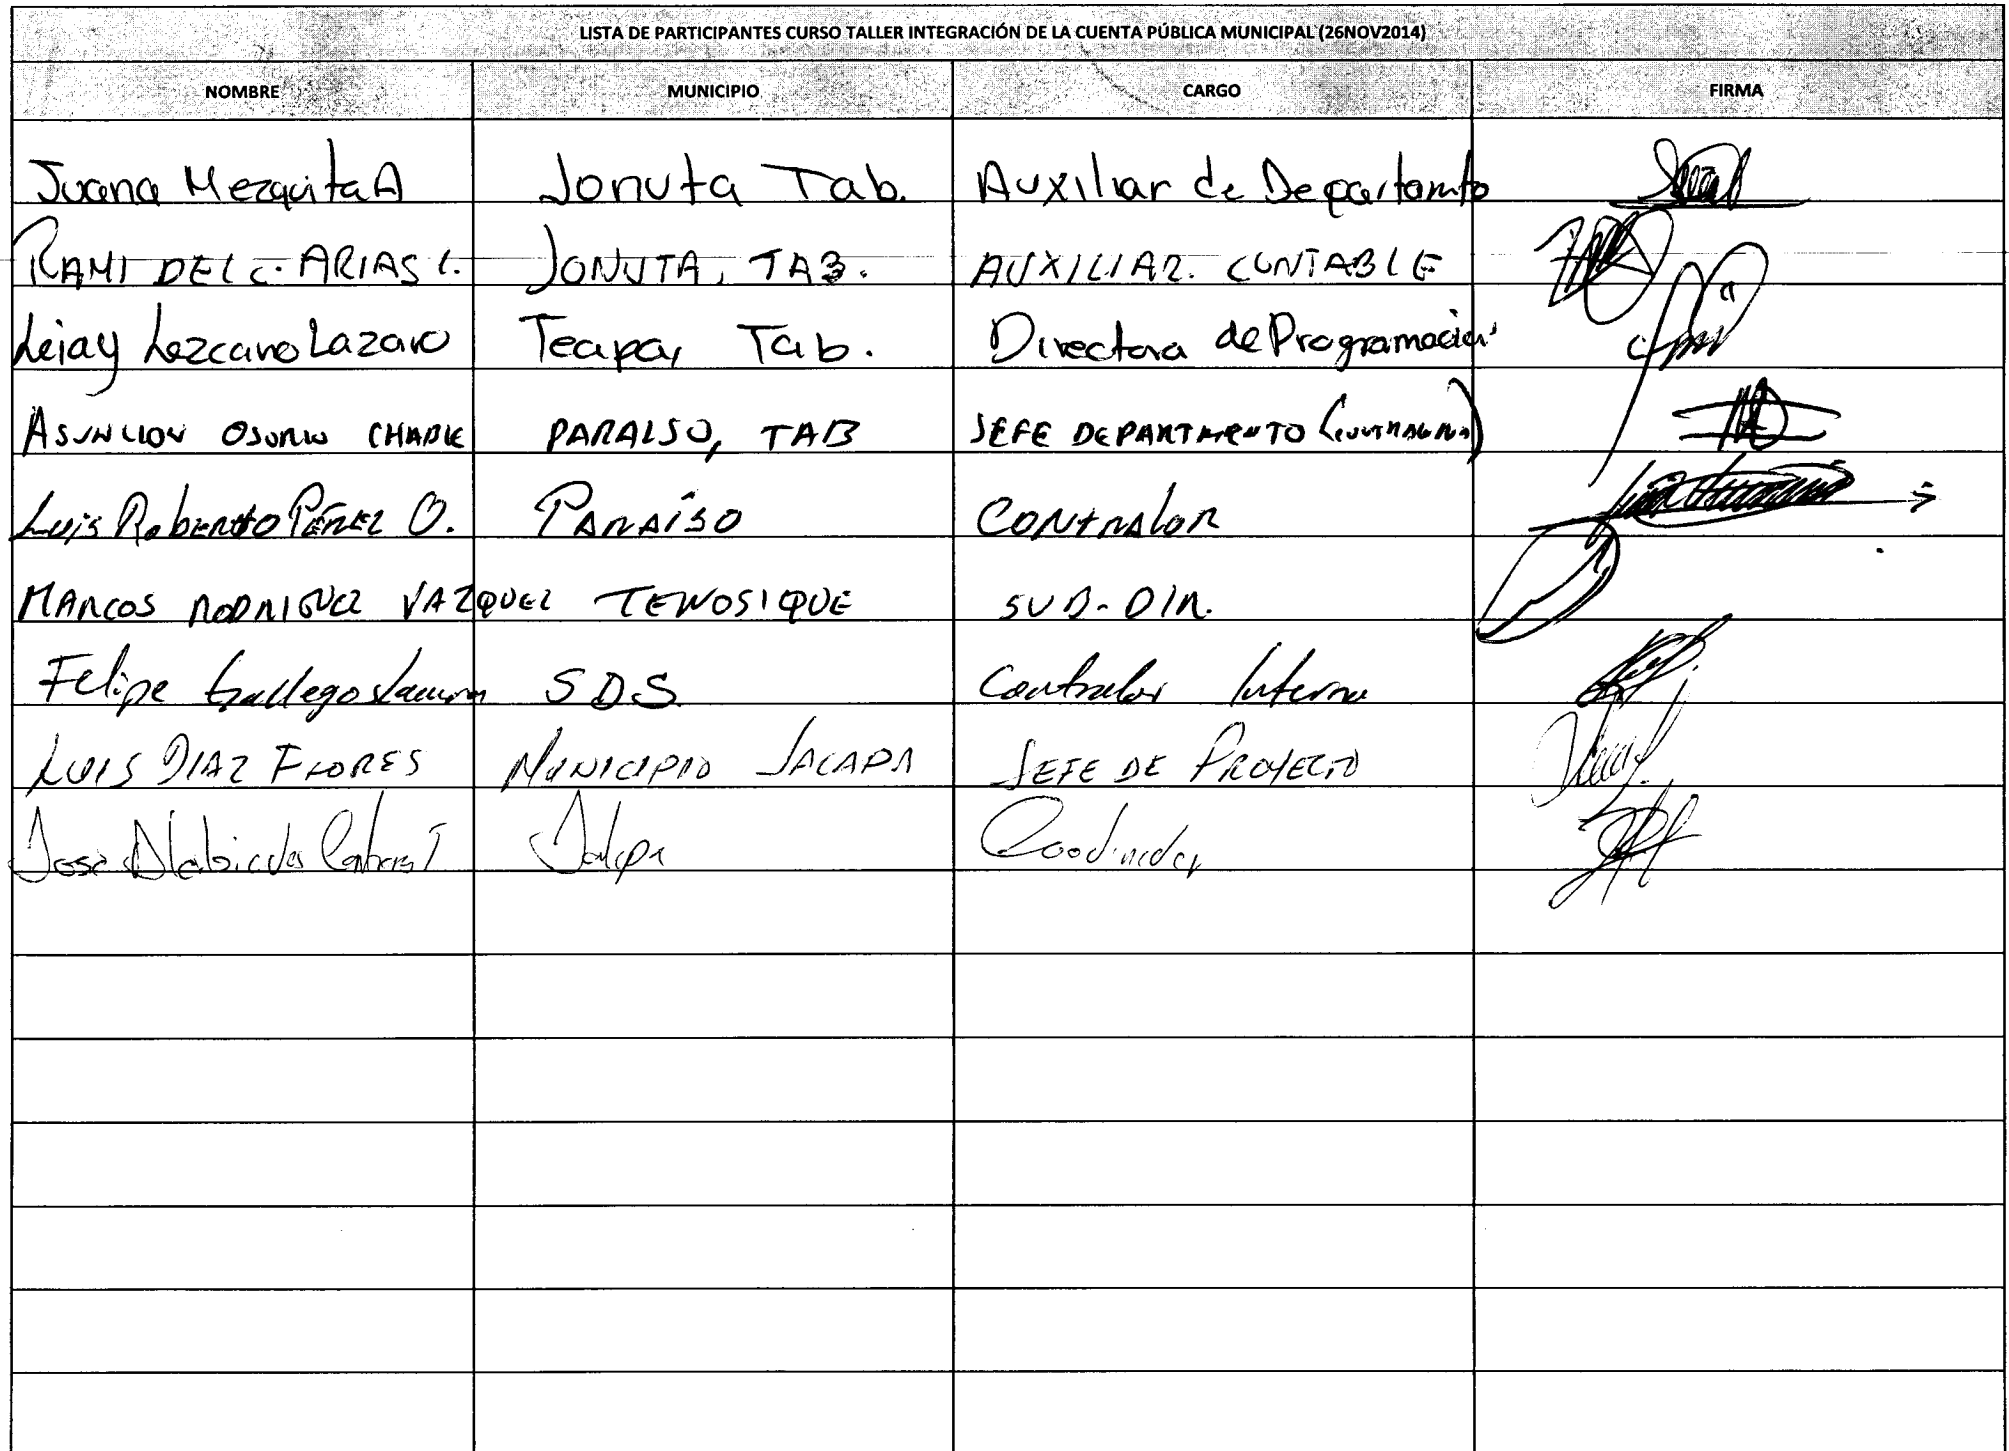 LISTA DE PARTICIPANTES CURSO TALLER INTEGRACIÓN DE LA CUENTA PÚBLICA MUNICIPAL (26NOV2014)
NOMBRE MUNICIPIO CARGO FIRMA
Juana Mezquita A Jonuta Tab. Auxiliar de Departamto
RAMI DEL C. ARIAS L. JONUTA, TAB. AUXILIAR. CONTABLE
Leiay Lezcano Lazaro Teapa, Tab. Directora de Programación
ASUNCION OSORIO CHABLE PARAISO, TAB JEFE DEPARTAMENTO
Luis Roberto Pérez O. PARAÍSO CONTRALOR
MARCOS RODRIGUEZ VAZQUEZ TENOSIQUE SUB-DIR.
Felipe Gallegos S.D.S. Contralor Interno
LUIS DIAZ FLORES MUNICIPIO JALAPA JEFE DE PROYECTO
José Jalapa Coordinador